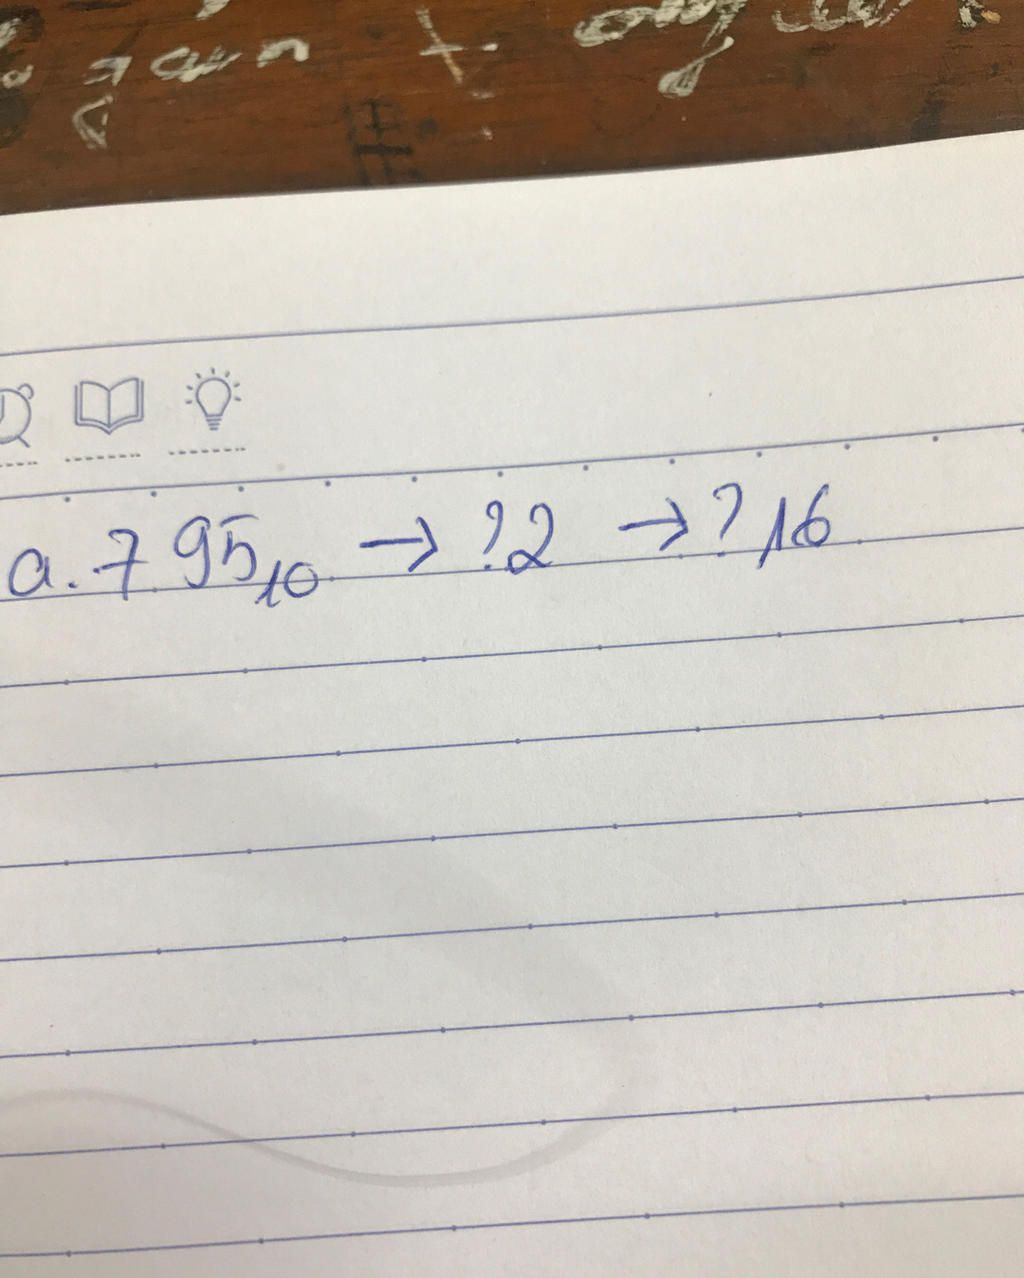 a. 795₁₀ → ?2 → ?16